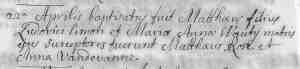 22a Aprilis baptisatus fuit Matthæus filius
Ludovici Simon et Maria Anna Wquty matris
ejus susceptores fuerunt Matthæus Rose et
Anna Vandevenne